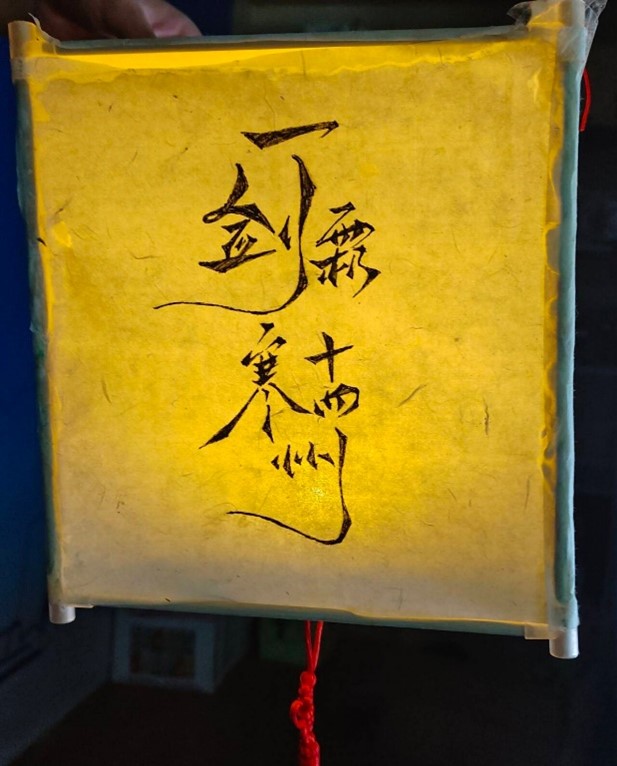 一剑霜
寒十四州